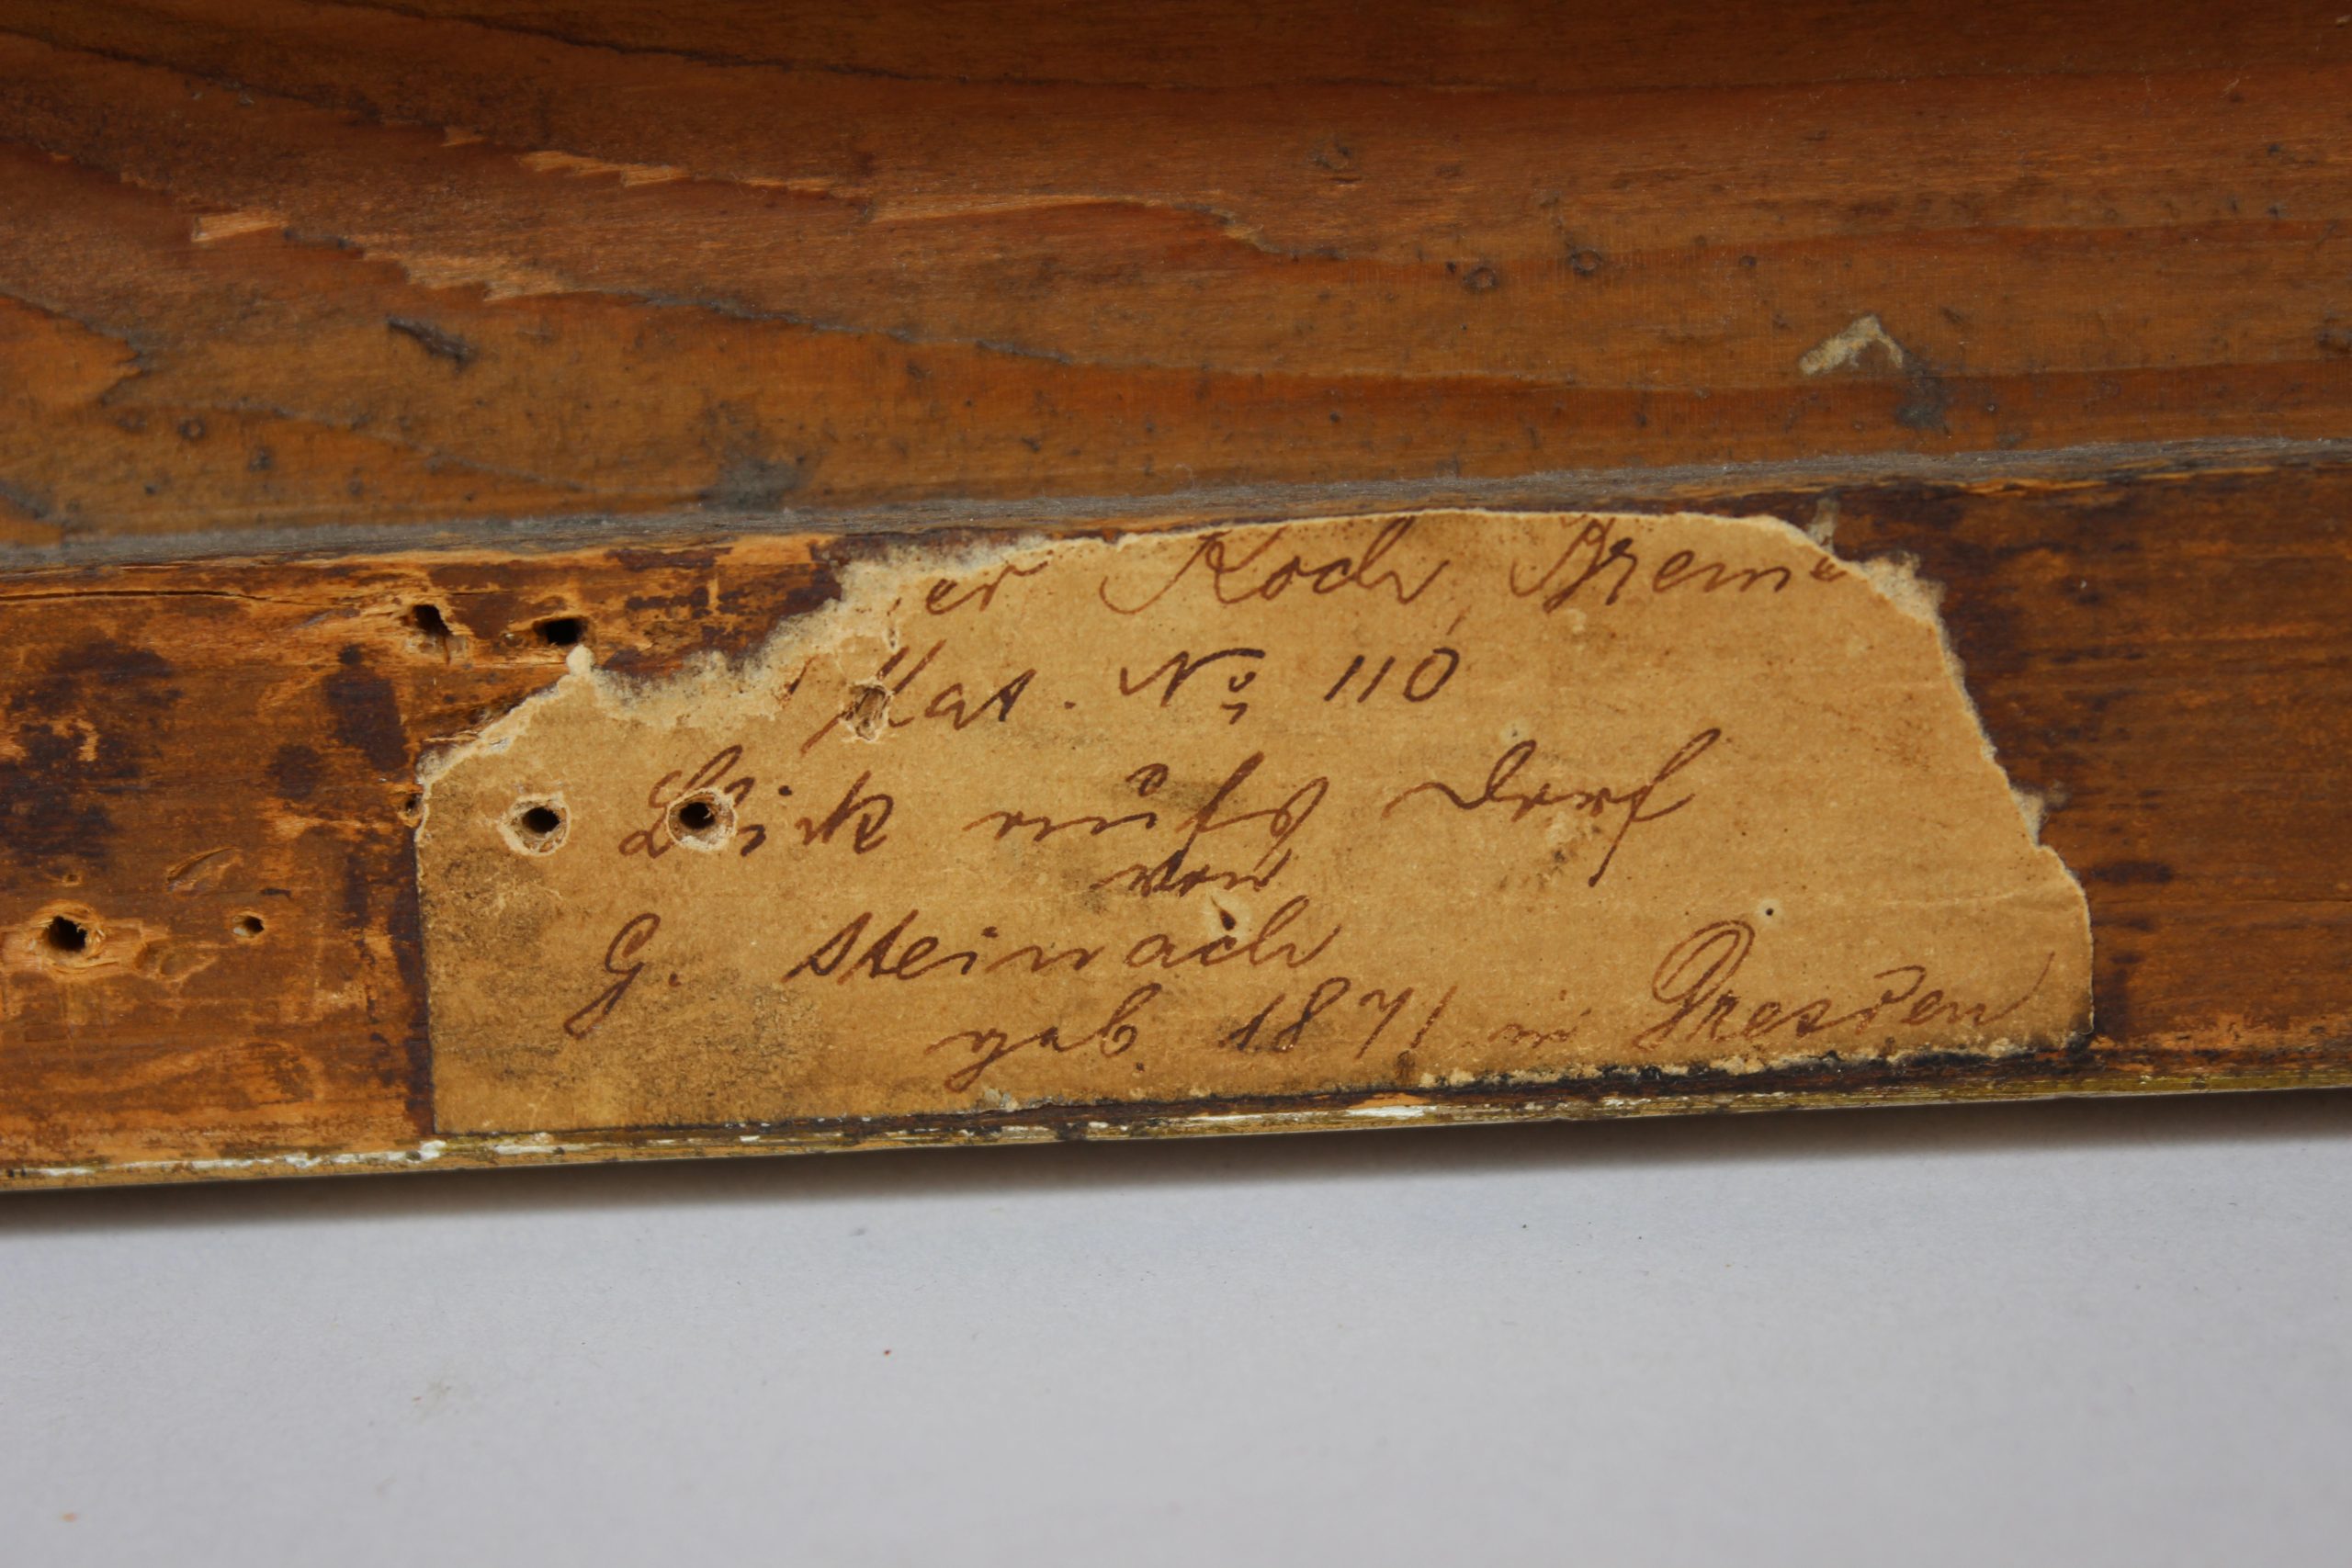 er Koch, Breme
Kat. No 110
Blick aufs Dorf
von
G. Steinach
geb. 1871 in Dresden